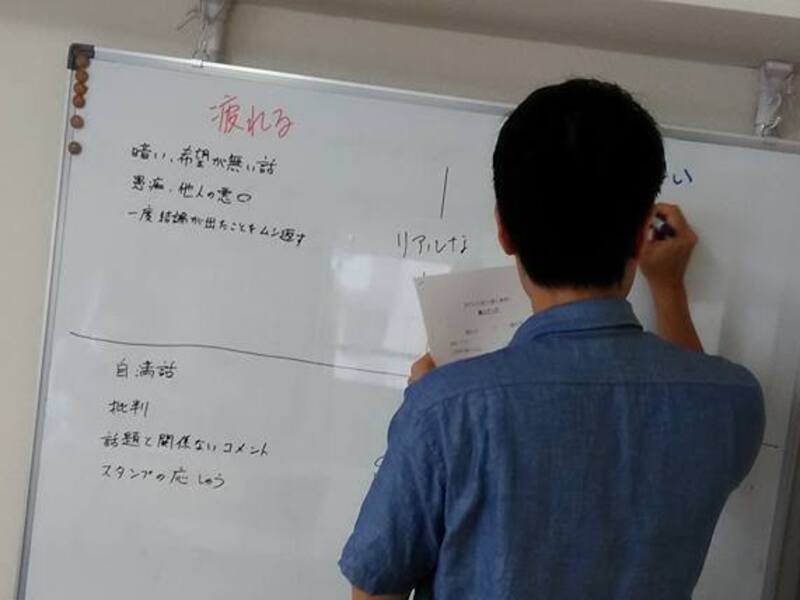 疲れる
暗い、希望が無い話
愚痴、他人の悪口
一度結論が出たことをムシ返す
リアルな
い
自満話
批判
話題と関係ないコメント
スタンプの応しゅう